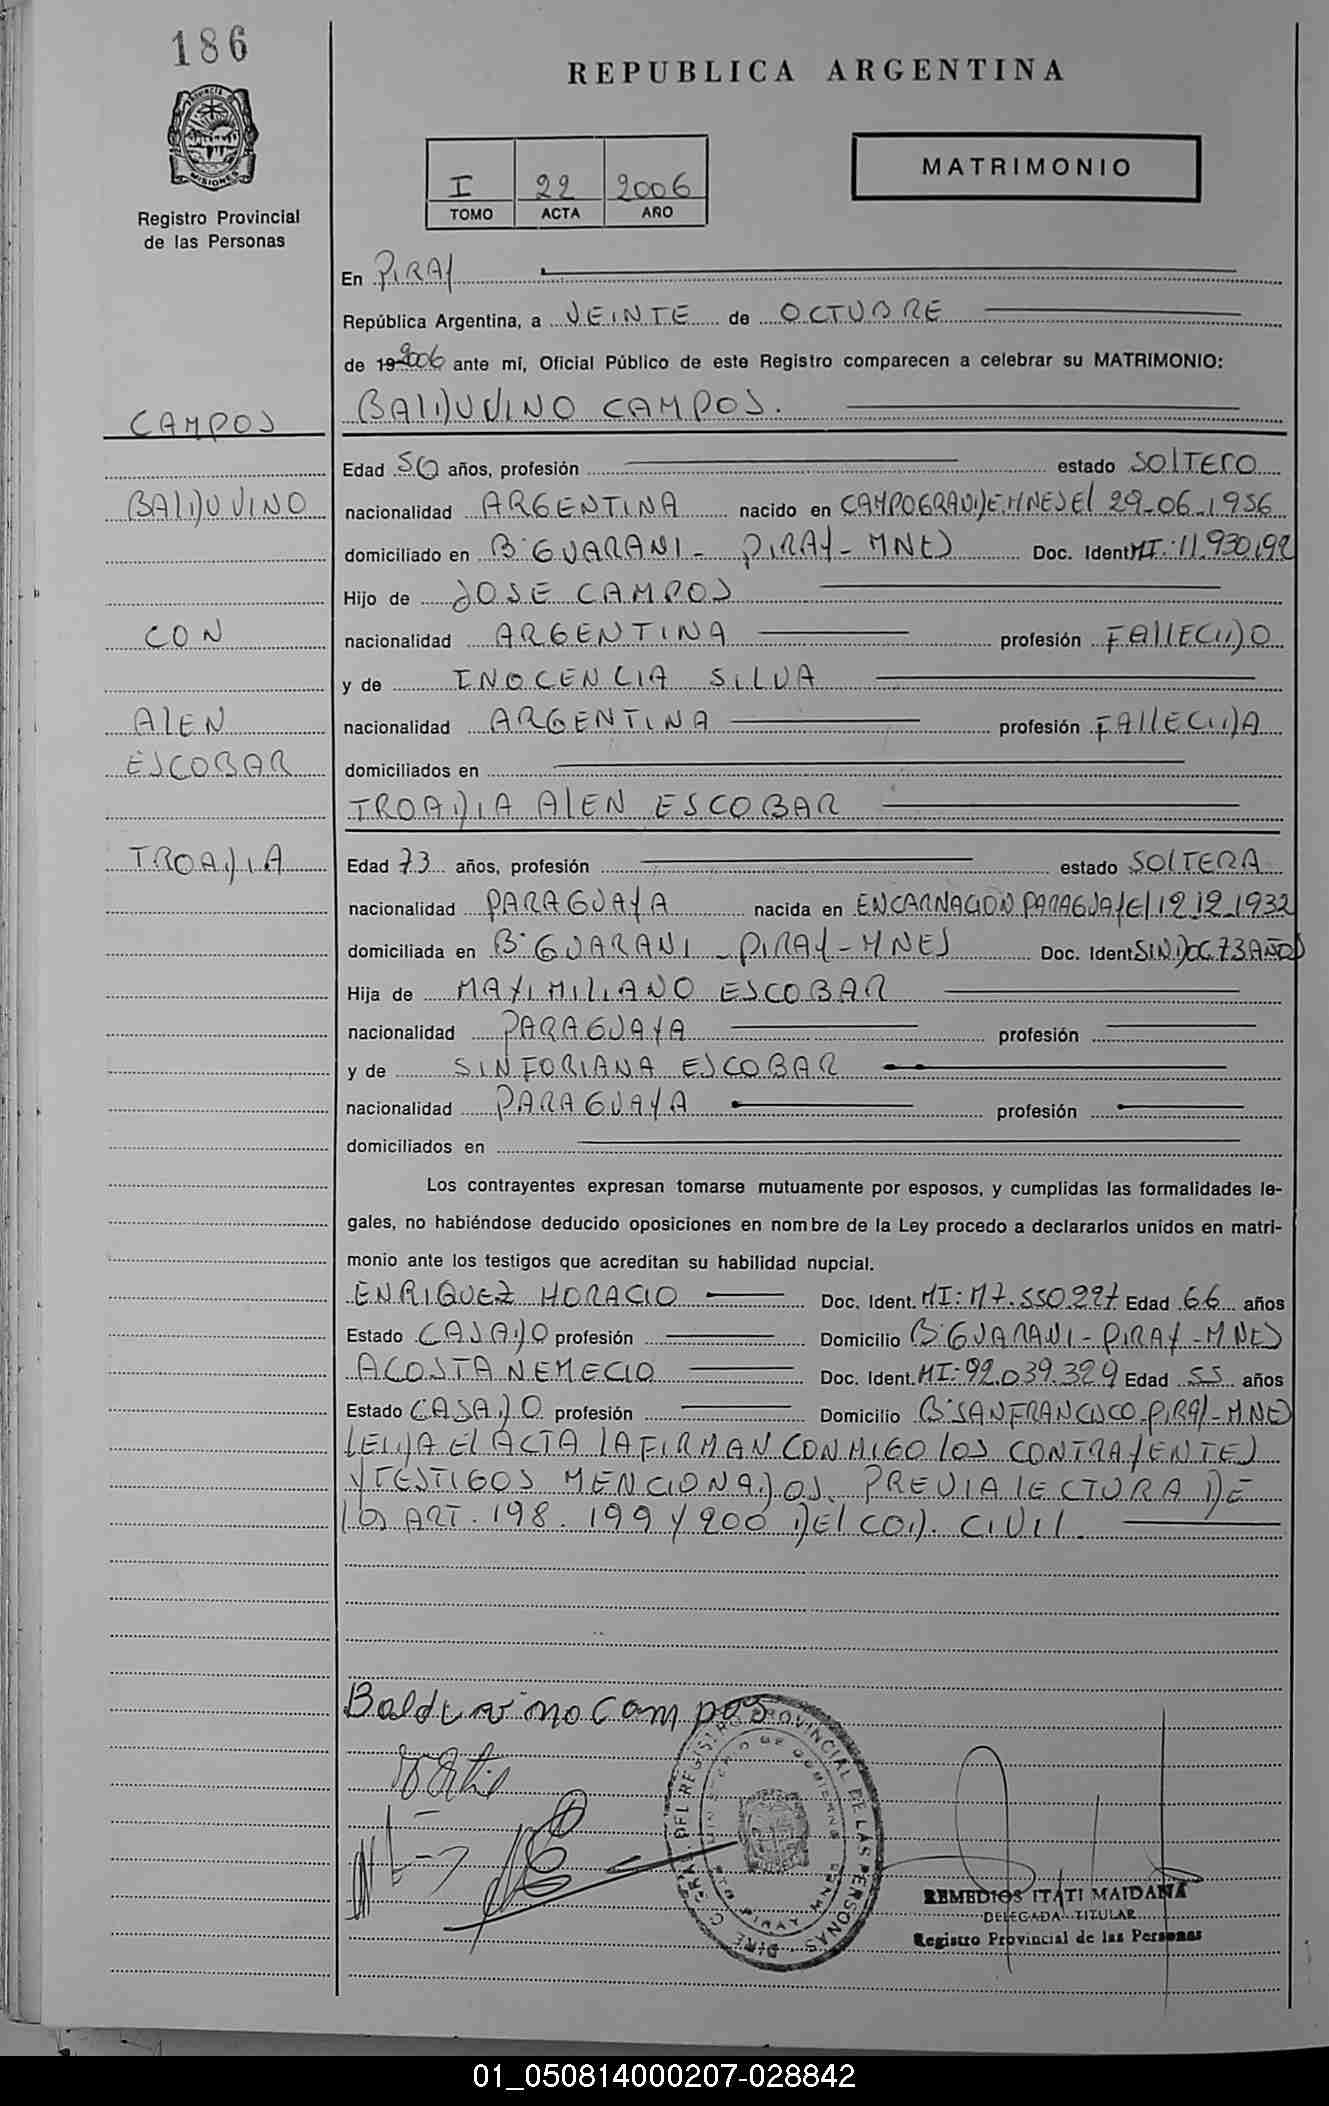 186
REPUBLICA ARGENTINA
MISIONES
Registro Provincial
de las Personas
I 22 2006
TOMO ACTA AÑO
MATRIMONIO
En PIRAY
República Argentina, a VEINTE de OCTUBRE
de 19 2006 ante mí, Oficial Público de este Registro comparecen a celebrar su MATRIMONIO:
CAMPOS
BALDUVINO CAMPOS.
Edad 50 años, profesión estado SOLTERO
BALDUVINO
nacionalidad ARGENTINA nacido en CAMPOGRANDE MNES El 29-06-1956
domiciliado en B° GUARANI - PIRAY - MNES Doc. Ident MI: 11.930.192
Hijo de JOSE CAMPOS
CON
nacionalidad ARGENTINA profesión FALLECIDO
y de INOCENCIA SILVA
ALEN
nacionalidad ARGENTINA profesión FALLECIDA
ESCOBAR
domiciliados en
TROADIA ALEN ESCOBAR
TROADIA
Edad 73 años, profesión estado SOLTERA
nacionalidad PARAGUAYA nacida en ENCARNACION PARAGUAY El 12.12.1932
domiciliada en B° GUARANI - PIRAY - MNES Doc. Ident SIN DOC. 73 AÑOS
Hija de MAXIMILIANO ESCOBAR
nacionalidad PARAGUAYA profesión
y de SINFORIANA ESCOBAR
nacionalidad PARAGUAYA profesión
domiciliados en
Los contrayentes expresan tomarse mutuamente por esposos, y cumplidas las formalidades le-
gales, no habiéndose deducido oposiciones en nombre de la Ley procedo a declararlos unidos en matri-
monio ante los testigos que acreditan su habilidad nupcial.
ENRIQUEZ HORACIO Doc. Ident. MI: M7.550.227 Edad 66 años
Estado CASADO profesión Domicilio B° GUARANI - PIRAY - MNES
ACOSTA NEMECIO Doc. Ident. MI: 92.039.329 Edad 55 años
Estado CASADO profesión Domicilio B° SAN FRANCISCO - PIRAY - MNES
LEIDA El ACTA LA FIRMAN CONMIGO LOS CONTRAYENTES
Y TESTIGOS MENCIONADOS. PREVIA LECTURA DE
LOS ART. 198. 199 Y 200 DEL COD. CIVIL.
Balduvino Campos
DIRE C. GRAL. DEL REGISTRO PROVINCIAL DE LAS PERSONAS
REMEDIOS ITATI MAIDANA
DELEGADA TITULAR
Registro Provincial de las Personas
01_050814000207-028842